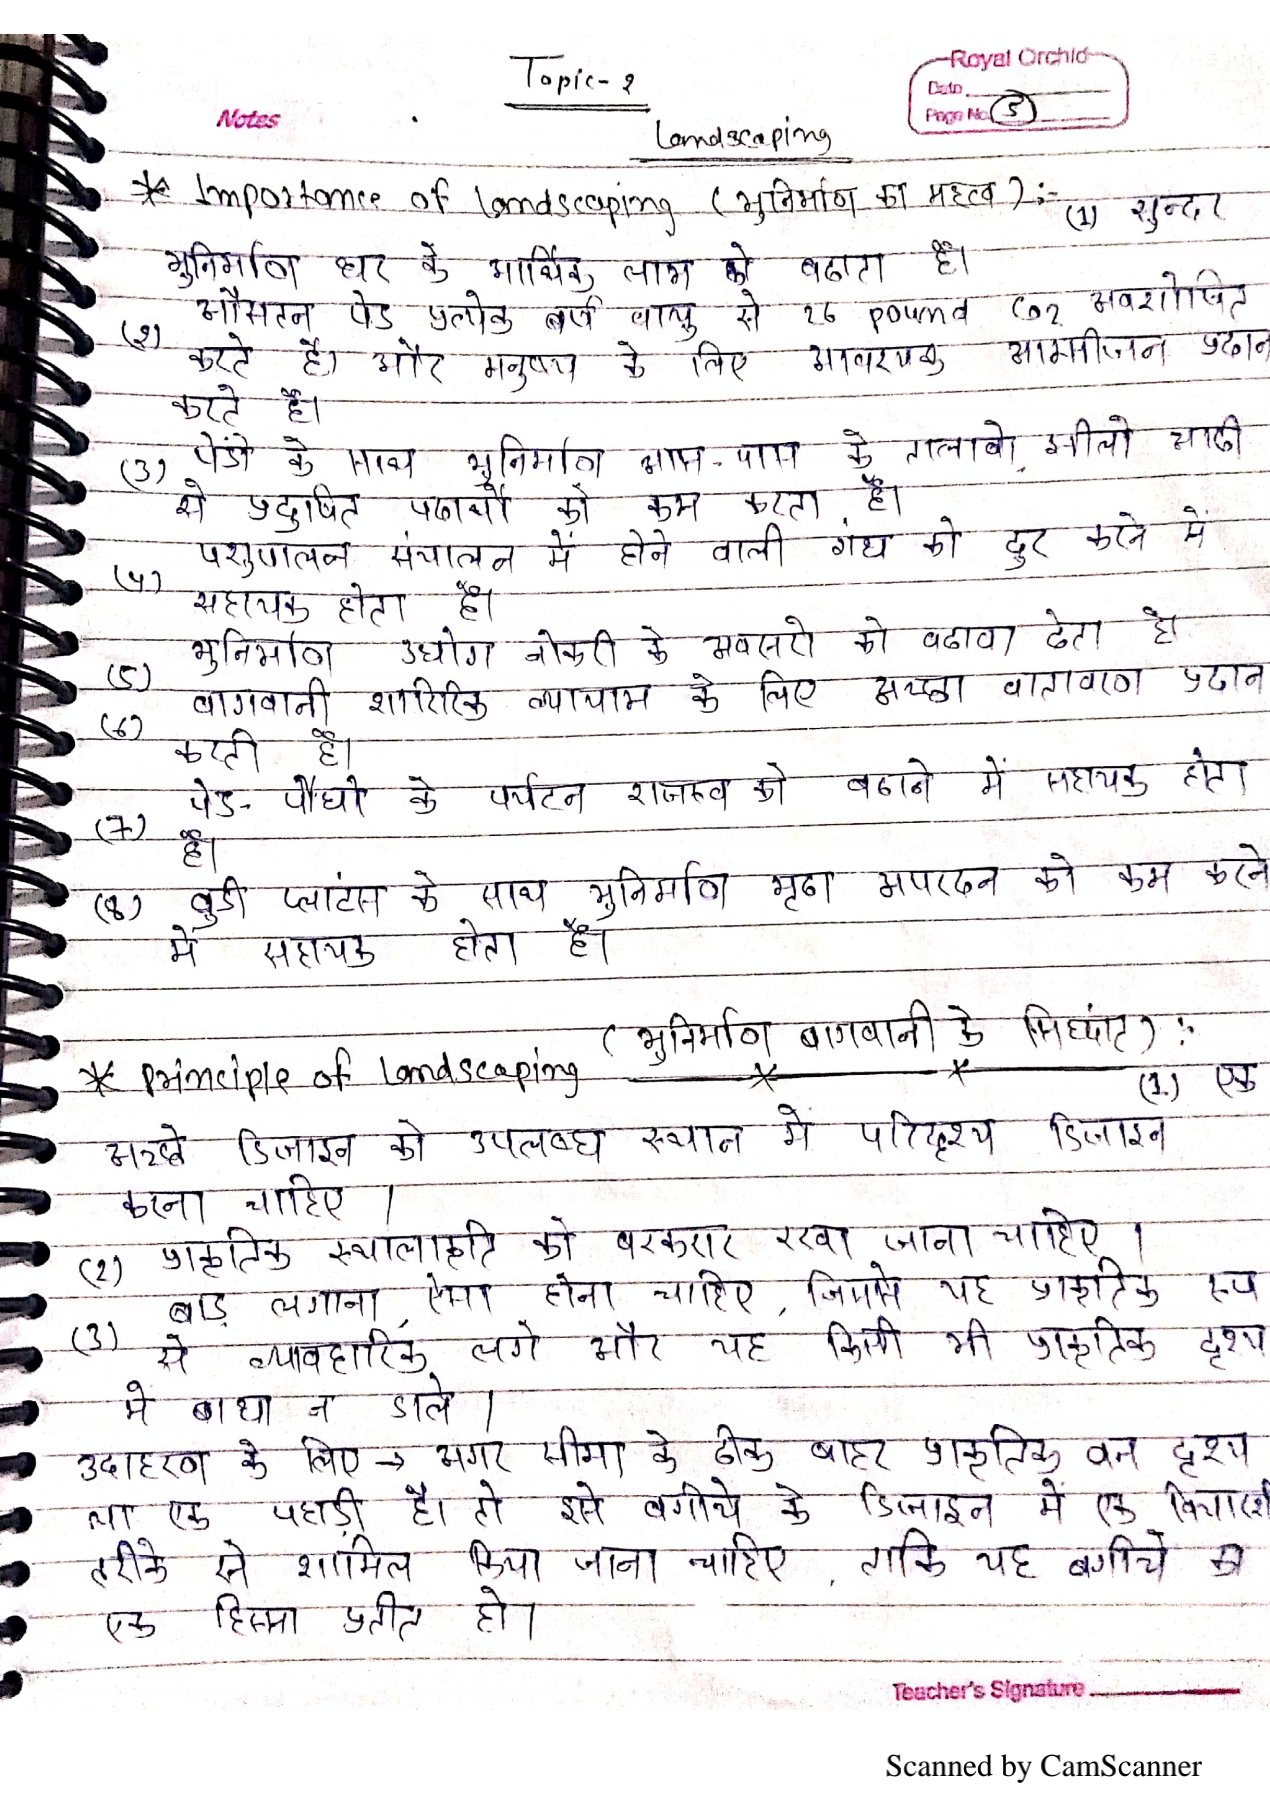 Topic-2
Royal Orchid
Date
Page No. 5
Notes
Landscaping
* Importance of landscaping (भुनिर्माण का महत्व) :- (1) सुन्दर
भुनिर्माण घर के आर्थिक लाभ को बढाता है।
(2) औसतन पेड प्रत्येक वर्ष वायु से 26 pound CO2 अवशोषित
करते है। और मनुष्य के लिए आवश्यक आक्सीजन प्रदान
करते है।
(3) पेडो के साथ भुनिर्माण आस-पास के तालाबो, झीलो आदी
से प्रदुषित पदार्थो को कम करता है।
(4) पशुपालन संचालन में होने वाली गंध को दुर करने में
सहायक होता है।
(5) भुनिर्माण उधोग नोकरी के अवसरो को बढावा देता है
(6) बागवानी शारिरिक व्यायाम के लिए अच्छा वातावरण प्रदान
करती है।
(7) पेड-पौधो के पर्यटन राजस्व को बढाने में सहायक होता
है।
(8) वुडी प्लांटस के साथ भुनिर्माण मृदा अपरदन को कम करने
में सहायक होता है।
(भुनिर्माण बागवानी के सिध्दांत) :-
* Principle of landscaping (1.) एक
अच्छे डिजाइन को उपलब्ध स्थान में परिदृश्य डिजाइन
करना चाहिए।
(2) प्राकृतिक स्थालाकृति को बरकरार रखा जाना चाहिए।
(3) बाड़ लगाना ऐसा होना चाहिए, जिससे यह प्राकृतिक रूप
से व्यावहारिक लगे और यह किसी भी प्राकृतिक दृश्य
में बाधा न डाले।
उदाहरण के लिए → अगर सीमा के ठीक बाहर प्राकृतिक वन दृश्य
या एक पहाड़ी है। तो इसे बगीचे के डिजाइन में एक
तरीके से शामिल किया जाना चाहिए, ताकि यह बगीचे का
एक हिस्सा प्रतीत हो।
Teacher's Signature
Scanned by CamScanner